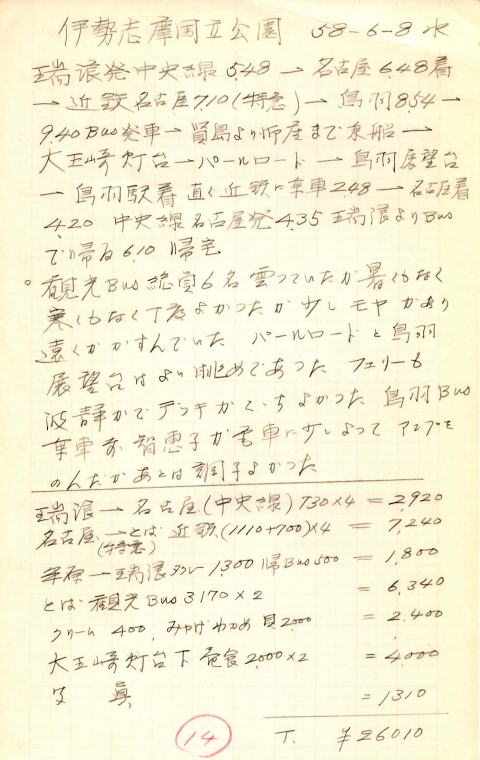 伊勢志摩国立公園 58-6-8 水
瑞浪発中央線 5.48 → 名古屋 6.48着
→ 近鉄名古屋 7.10 (特急) → 鳥羽 8.54 →
9.40 Bus発車 → 賢島より御座まで乗船 →
大王崎灯台 → パールロード → 鳥羽展望台
→ 鳥羽駅着 直ぐ近鉄に乗車 2.48 → 名古屋着
4.20 中央線名古屋発 4.35 瑞浪よりBus
で帰る 6.10 帰宅
○ 観光Bus総員6名 雲っていたが暑くもなく
寒くもなく丁度よかったが少しモヤがあり
遠くがかすんでいた パールロードと鳥羽
展望台はよい眺めであった フェリーも
波静かでデッキがここちよかった 鳥羽Bus
乗車前 智恵子が電車に少しよって アンプモ
のんだがあとは調子よかった
瑞浪 → 名古屋 (中央線) 730×4 = 2,920
名古屋 → とば 近鉄 (1110+700)×4 = 7,240
(特急)
瑞浪 1,300 帰Bus 500 = 1,800
とば観光Bus 3170×2 = 6,340
クリーム 400, みやげわかめ 貝 2,000 = 2,400
大王崎灯台下 昼食 2,000×2 = 4,000
写真 = 1310
14 T. ¥26010